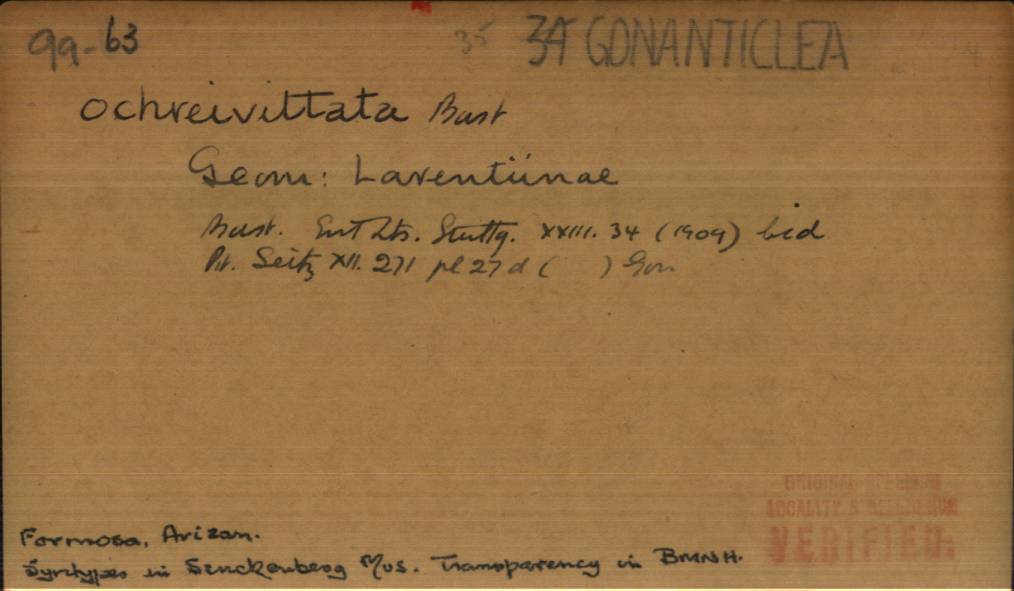 99-63 35 34 GONANTICLEA
ochreivittata Bast
Geom: Larentiinae
Bast. Ent Zts. Stuttg. XXIII. 34 (1909) Cid
Pr. Seitz XII. 271 pl 27 d ( ) Gon
Formosa, Arizan.
Syntypes in Senckenberg Mus. Transparency in BMNH.
ORIGINAL SPELLING
LOCALITY & REFERENCE
VERIFIED.